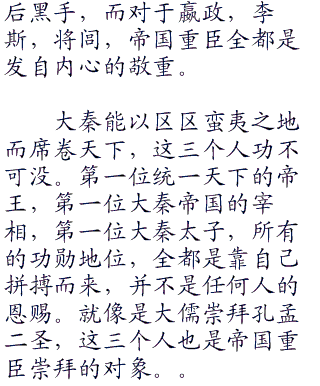 后黑手，而对于嬴政，李
斯，将闾，帝国重臣全都是
发自内心的敬重。
大秦能以区区蛮夷之地
而席卷天下，这三个人功不
可没。第一位统一天下的帝
王，第一位大秦帝国的宰
相，第一位大秦太子，所有
的功勋地位，全都是靠自己
拼搏而来，并不是任何人的
恩赐。就像是大儒崇拜孔孟
二圣，这三个人也是帝国重
臣崇拜的对象。。